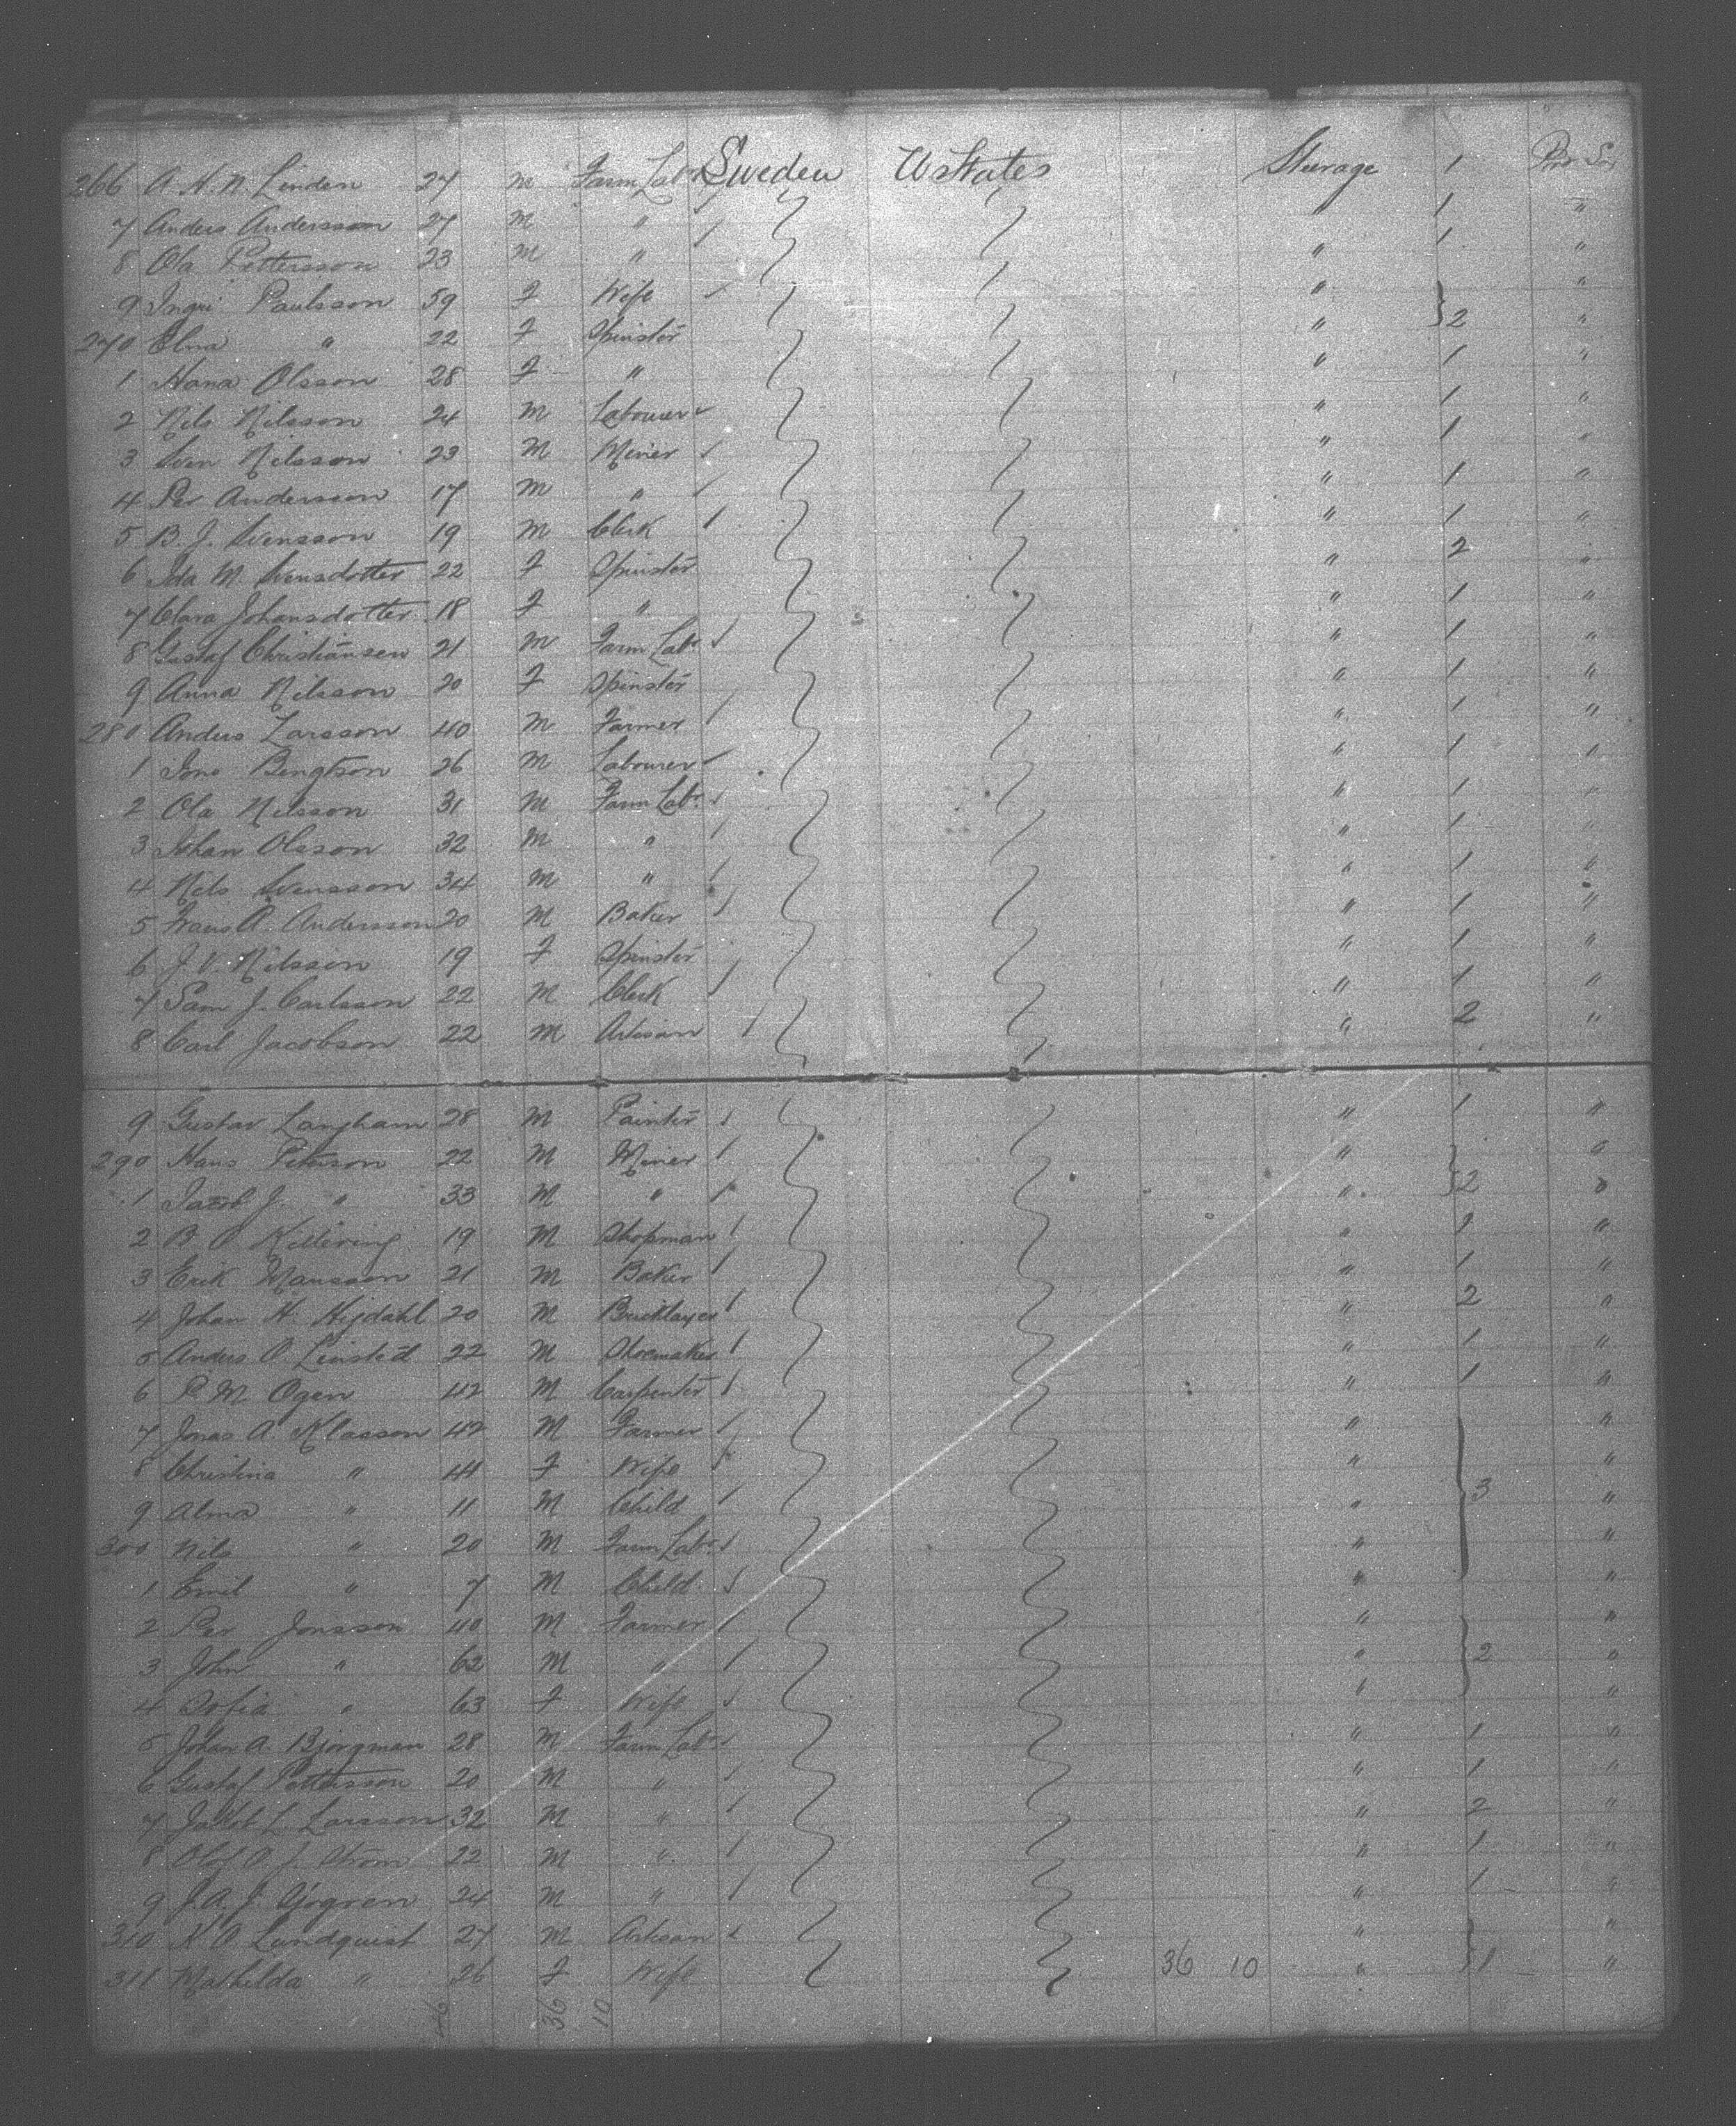 266 A. N. N. Linden 27 M Farm Labr Sweden U States Steerage 1
7 Anders Andersson 27 M " " 1 "
8 Ola Pettersson 23 M " " 1 "
9 Ingri Paulsson 59 F Wife " "
270 Elna " 22 F Spinster " 2 "
1 Hana Olsson 28 F " " 1 "
2 Nils Nilsson 24 M Labourer " 1 "
3 Sven Nilsson 23 M Miner " 1 "
4 Per Andersson 17 M " " 1 "
5 B. J. Svensson 19 M Clerk " 1 "
6 Ida M. Svensdotter 22 F Spinster " 2 "
7 Clara Johansdotter 18 F " " 1 "
8 Gustaf Christiansen 21 M Farm Labr " 1 "
9 Anna Nilsson 20 F Spinster " 1 "
280 Anders Larsson 40 M Farmer " 1 "
1 Bengtson 26 M Labourer " 1 "
2 Ola Nilsson 31 M Farm Labr " 1 "
3 Johan Olsson 32 M " " 1 "
4 Nils Svensson 34 M " " 1 "
5 Frans A. Andersson 20 M Baker " 1 "
6 J. V. Nilsson 19 F Spinster " 1 "
7 Sam J. Carlsson 22 M Clerk " 1 "
8 Carl Jacobson 22 M Artisan " 2 "
9 Gustav Langham 28 M Painter " 1 "
290 Hans Peterson 22 M Miner " "
1 Jacob J. " 33 M " " 2 "
2 B O Kellering 19 M Shopman " 1 "
3 Erik Mansson 21 M Baker " 1 "
4 Johan H. Higdahl 20 M Bricklayer " 2 "
5 Anders O. Linsted 22 M Shoemaker " 1 "
6 P. M. Ogen 42 M Carpenter " 1 "
7 Jonas A. Klasson 42 M Farmer " "
8 Christina " 44 F Wife " "
9 Alma " 11 M Child " 3 "
300 Nils " 20 M Farm Labr " "
1 Emil " 7 M Child " "
2 Per Jonsson 40 M Farmer " "
3 John " 62 M " " 2 "
4 Sofia " 63 F Wife " "
5 Johan A. Bjorgman 28 M Farm Labr " 1 "
6 Gustaf Pettersson 20 M " " 1 "
7 Jakob L. Larsson 32 M " " 2 "
8 Olof O. J. Strom 22 M " " 1 "
9 J. A. J. Sjogren 24 M " " 1 "
310 K. O. Lundquist 27 M Artisan " "
311 Mathilda " 26 F Wife 36 10 " 1 "
46 36 10